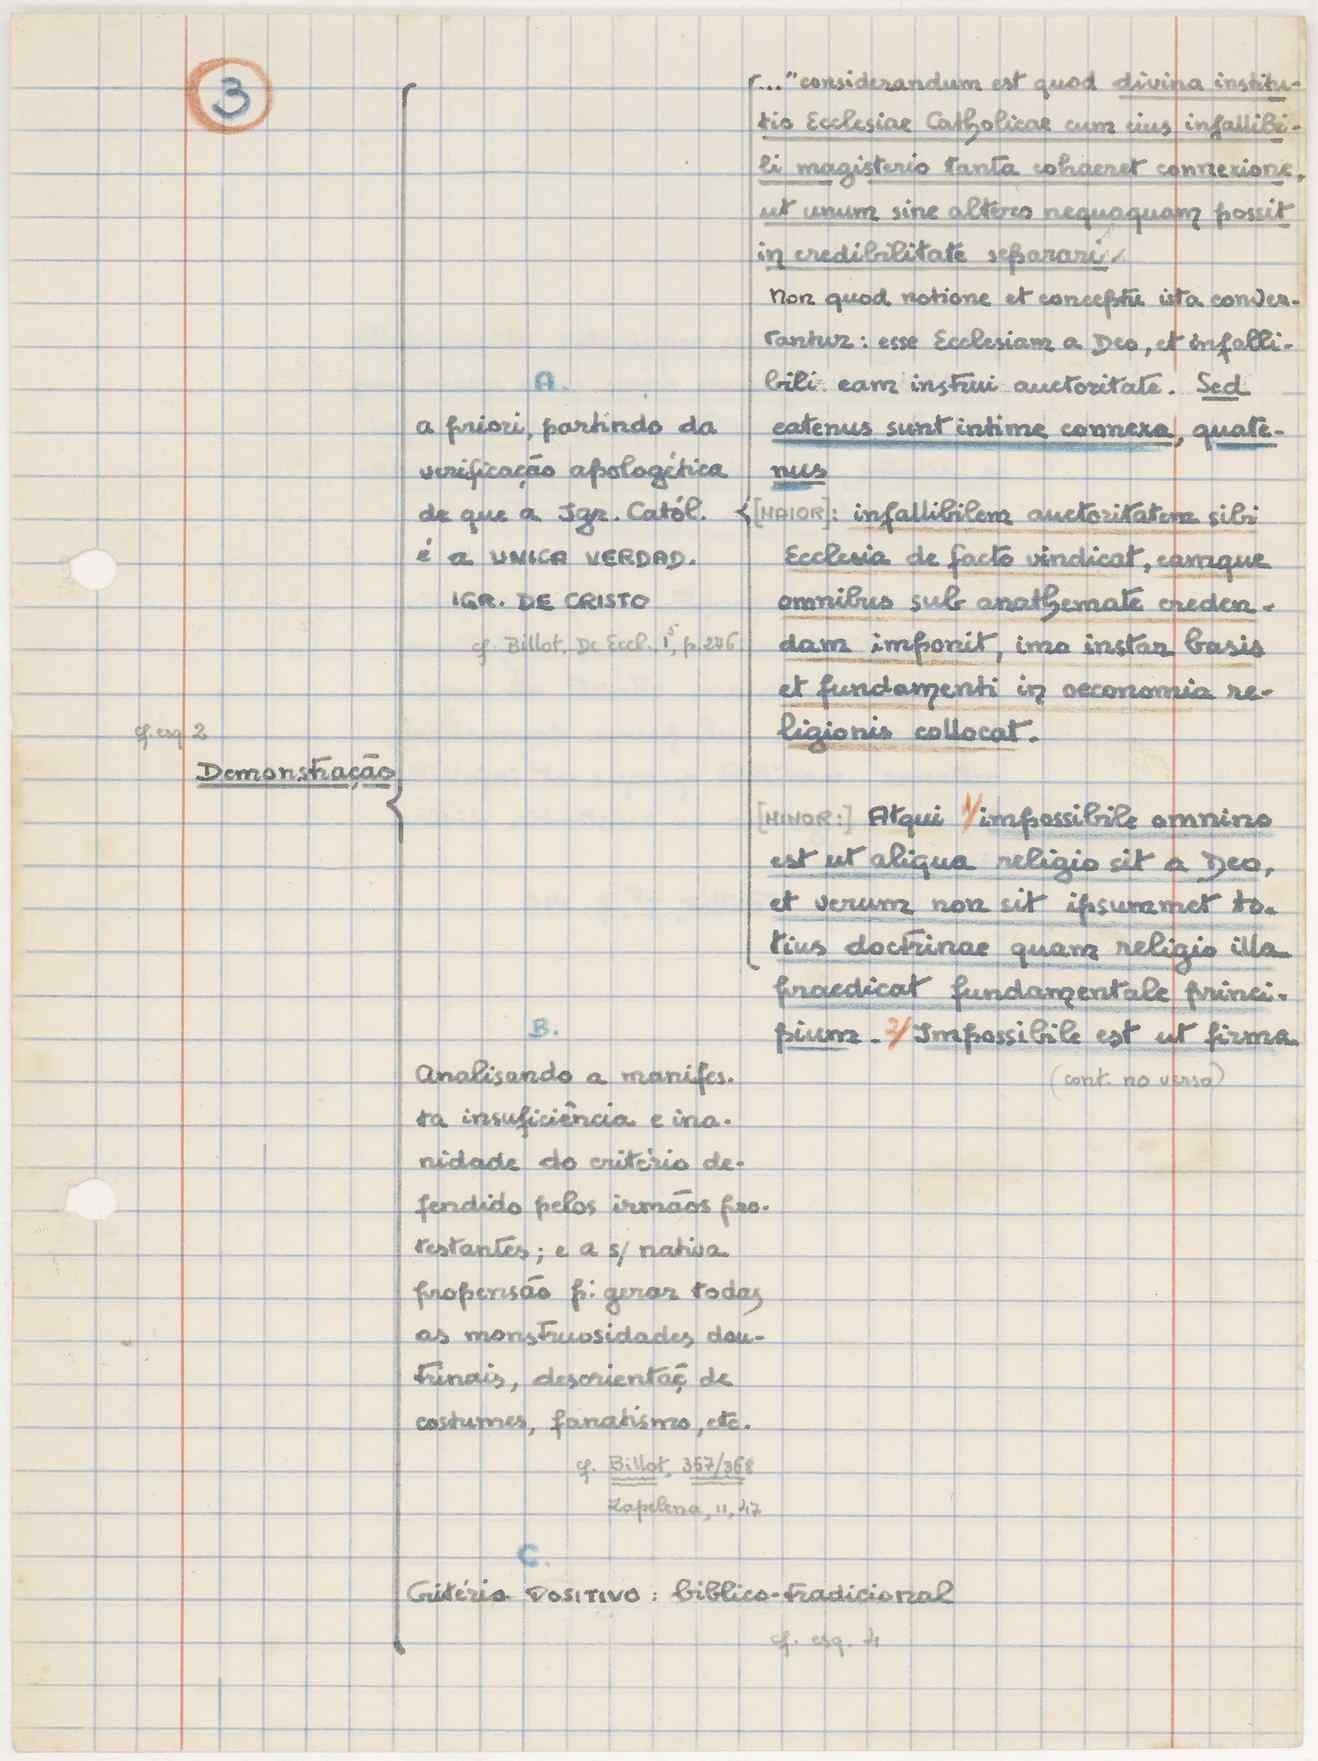 3
cf. esq. 2
Demonstração
A.
a priori, partindo da
verificação apologética
de que a Igr. Catól.
é a UNICA VERDAD.
IGR. DE CRISTO
cf. Billot, De Eccl., 1⁵, p. 246
..."considerandum est quod divina institu-
tio Ecclesiae Catholicae cum eius infallibi-
li magisterio tanta cohaeret connexione,
ut unum sine altero nequaquam possit
in credibilitate separari.
Non quod notione et conceptu ista conver-
tantur: esse Ecclesiam a Deo, et infalli-
bili eam instrui auctoritate. Sed
eatenus sunt intime connexa, quate-
nus
[MAIOR]: infallibilem auctoritatem sibi
Ecclesia de facto vindicat, eamque
omnibus sub anathemate creden-
dam imponit, imo instar basis
et fundamenti in oeconomia re-
ligionis collocat.
[MINOR:] Atqui 1/ impossibile omnino
est ut aliqua religio sit a Deo,
et verum non sit ipsummet to-
tius doctrinae quam religio illa
praedicat fundamentale princi-
pium. 2/ Impossibile est ut firma
(cont. no verso)
B.
Analisando a manifes-
ta insuficiência e ina-
nidade do critério de-
fendido pelos irmãos pro-
testantes; e a s/ nativa
propensão p: gerar todas
as monstruosidades dou-
trinais, desorientaç̃ de
costumes, fanatismo, etc.
cf. Billot, 357/368
Zapelena, II, 47
C.
Critério POSITIVO: bíblico-tradicional
cf. esq. 4